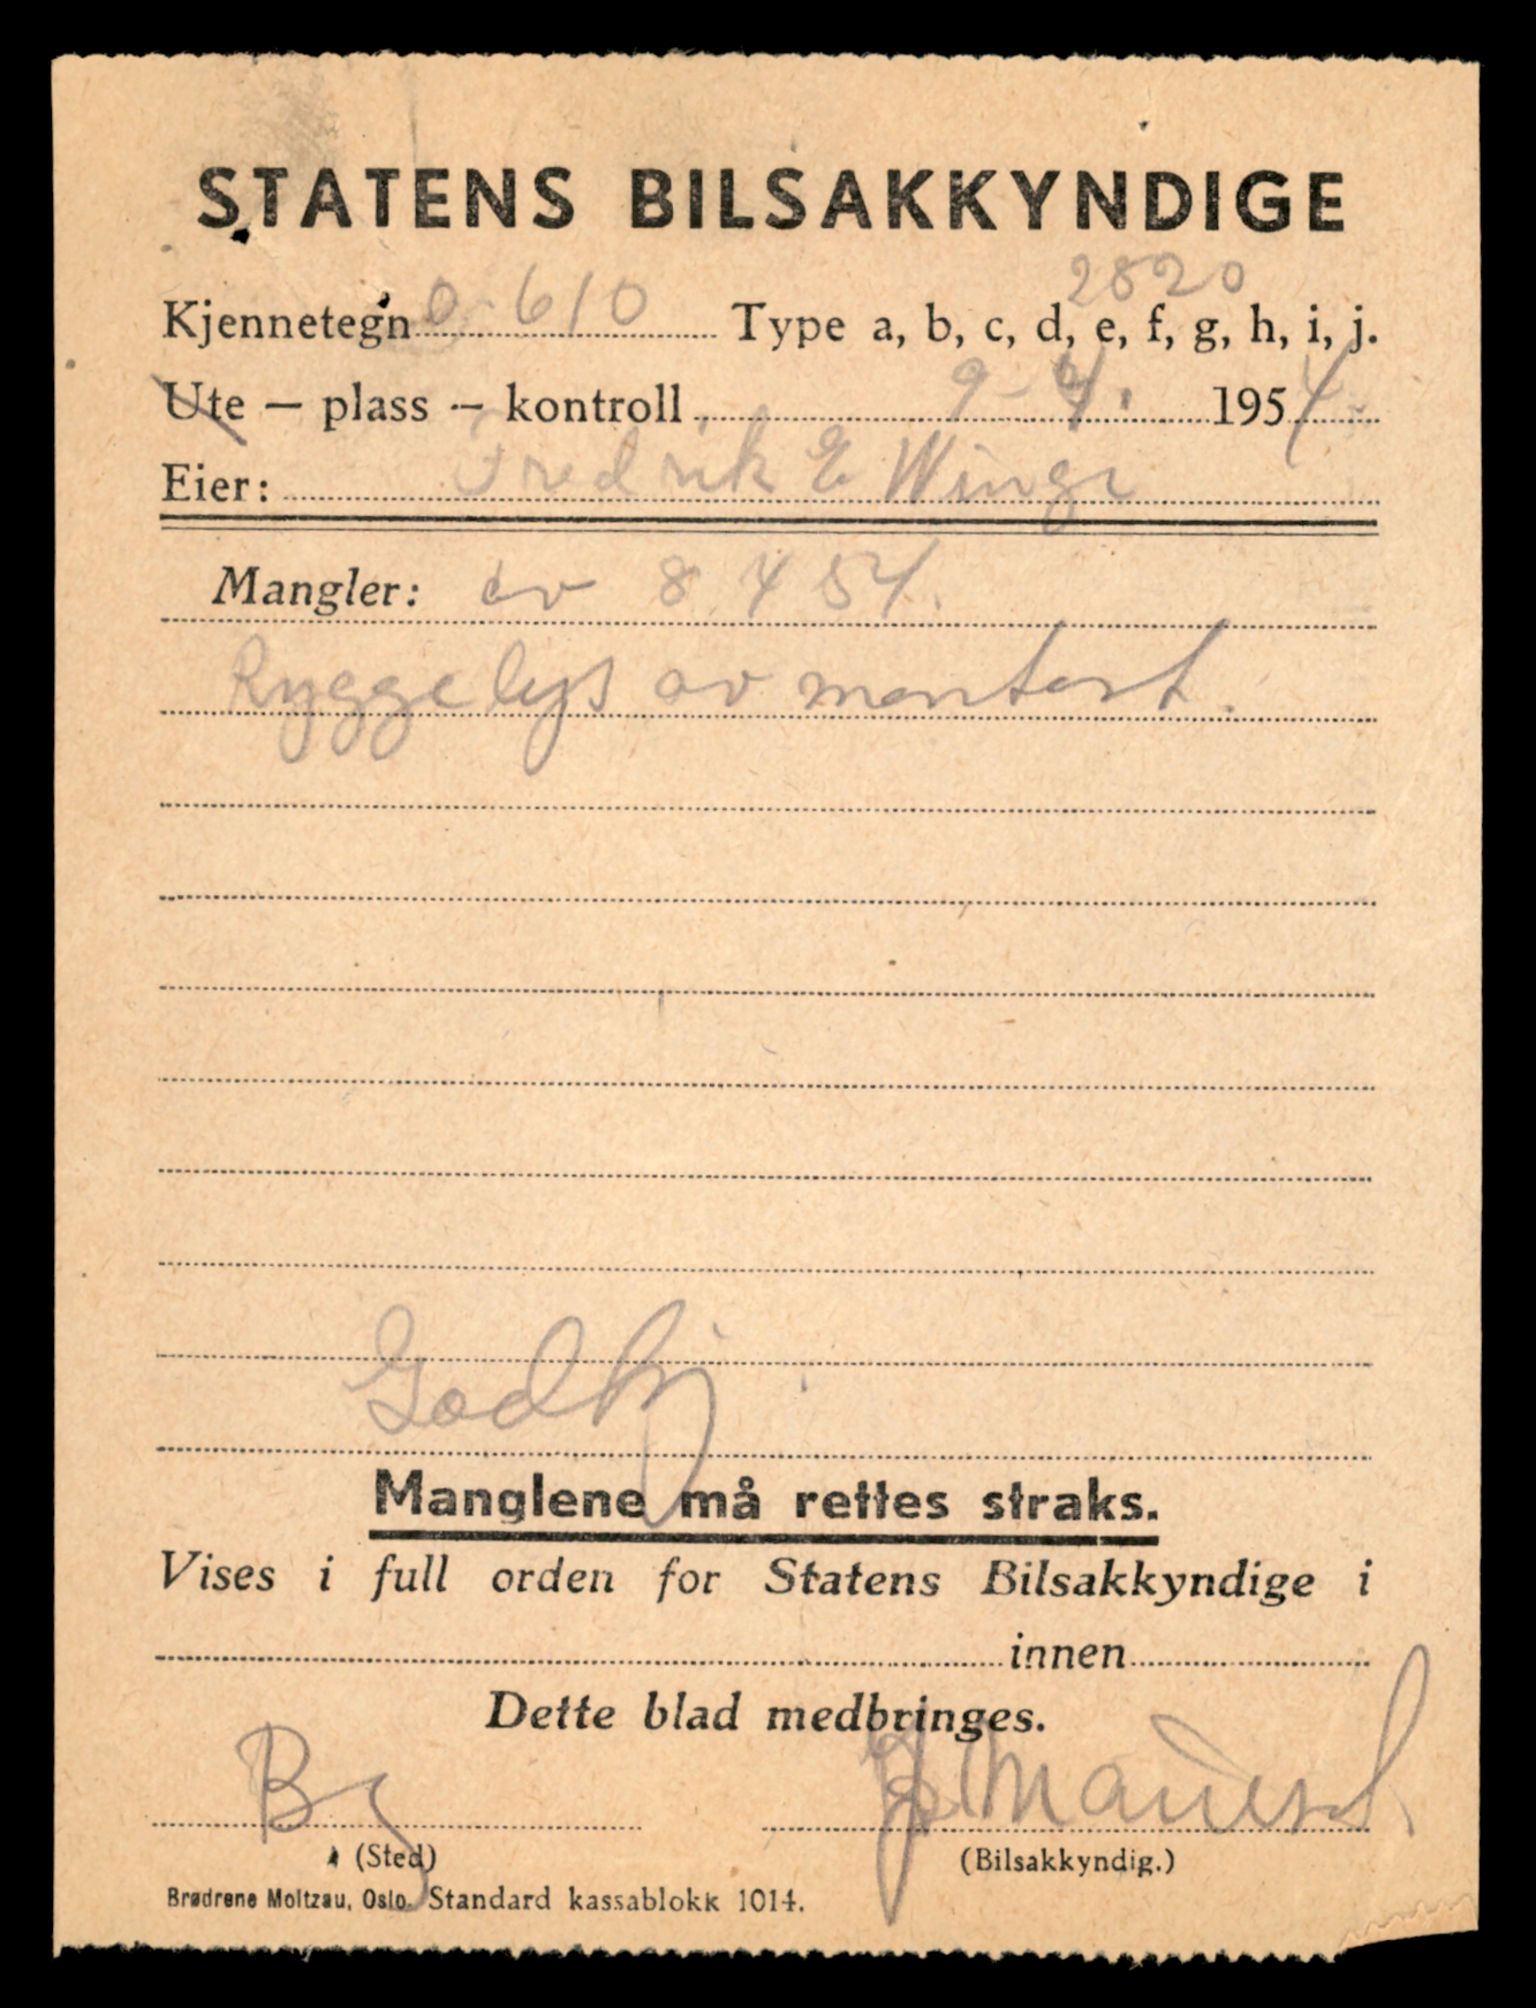 STATENS BILSAKKYNDIGE
2820
Kjennetegn O-610 Type a, b, c, d, e, f, g, h, i, j.
Ute – plass – kontroll 9-4. 1954
Eier: Fredrik E Winge
Mangler: av 8 4 54.
Ryggelys av montert.
Godkj
Manglene må rettes straks.
Vises i full orden for Statens Bilsakkyndige i
innen
Dette blad medbringes.
(Sted) (Bilsakkyndig.)
Brødrene Moltzau, Oslo. Standard kassablokk 1014.